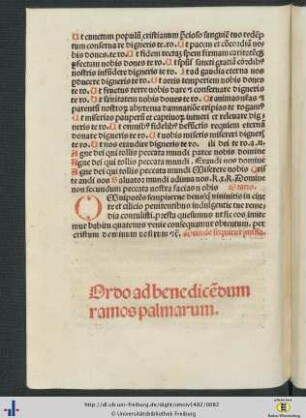 Ut cunctum populū cristianum p̄cioso sanguīe tuo redēp
tum conserva re digneris te ro. Ut pacem et cōcordiā no
bis dones te ro. Ut fidem rectaȝ spem firmam caritatē
ꝑfectam nobis dones te ro. Ut spūs sancti gratiā cordibꝰ
nostris infūdere digneris te ro. Ut ad gaudia eterna nos
ꝑducere digneris te ro. Ut aeris temperiem nobis dones
te ro. Ut fructus terre nobis dare et conservare digneris
te ro. Ut sanitatem nobis dones te ro. Ut animas nrās et
parentū nostroȝ ab eterna damnatiōe eripias te rogamꝰ
Ut miserias pauperū et captivoȝ intueri et relevare dig
neris te ro. Ut omnibꝰ fidelibꝰ defūctis requiem eternā
donare digneris te ro. Ut nobis miseris misereri digneris
te ro. Ut nos exaudire digneris te ro. fili dei te ro.
Agne dei qui tollis peccata mundi parce nobis domine
Agne dei qui tollis peccata mundi. Exaudi nos domine
Agne dei qui tollis peccata mundi Miserere nobis
audi nos Salvator mundi adiuva nos. Domine
non secundum peccata nostra facias nobis Oratio.
Omnipotēs sempiterne deus in cine
re et cilicio penitentibus indulgentie tue reme
dia contulisti. presta quesumus ut sic eos imite
mur habitu quatenus venie consequamur obtentum. per
cristum dominum nostrum
Ordo ad benedicēdum
ramos palmarum.
http://dl.ub.uni-freiburg.de/diglit/
© Universitätsbibliothek Freiburg
Baden-Württemberg